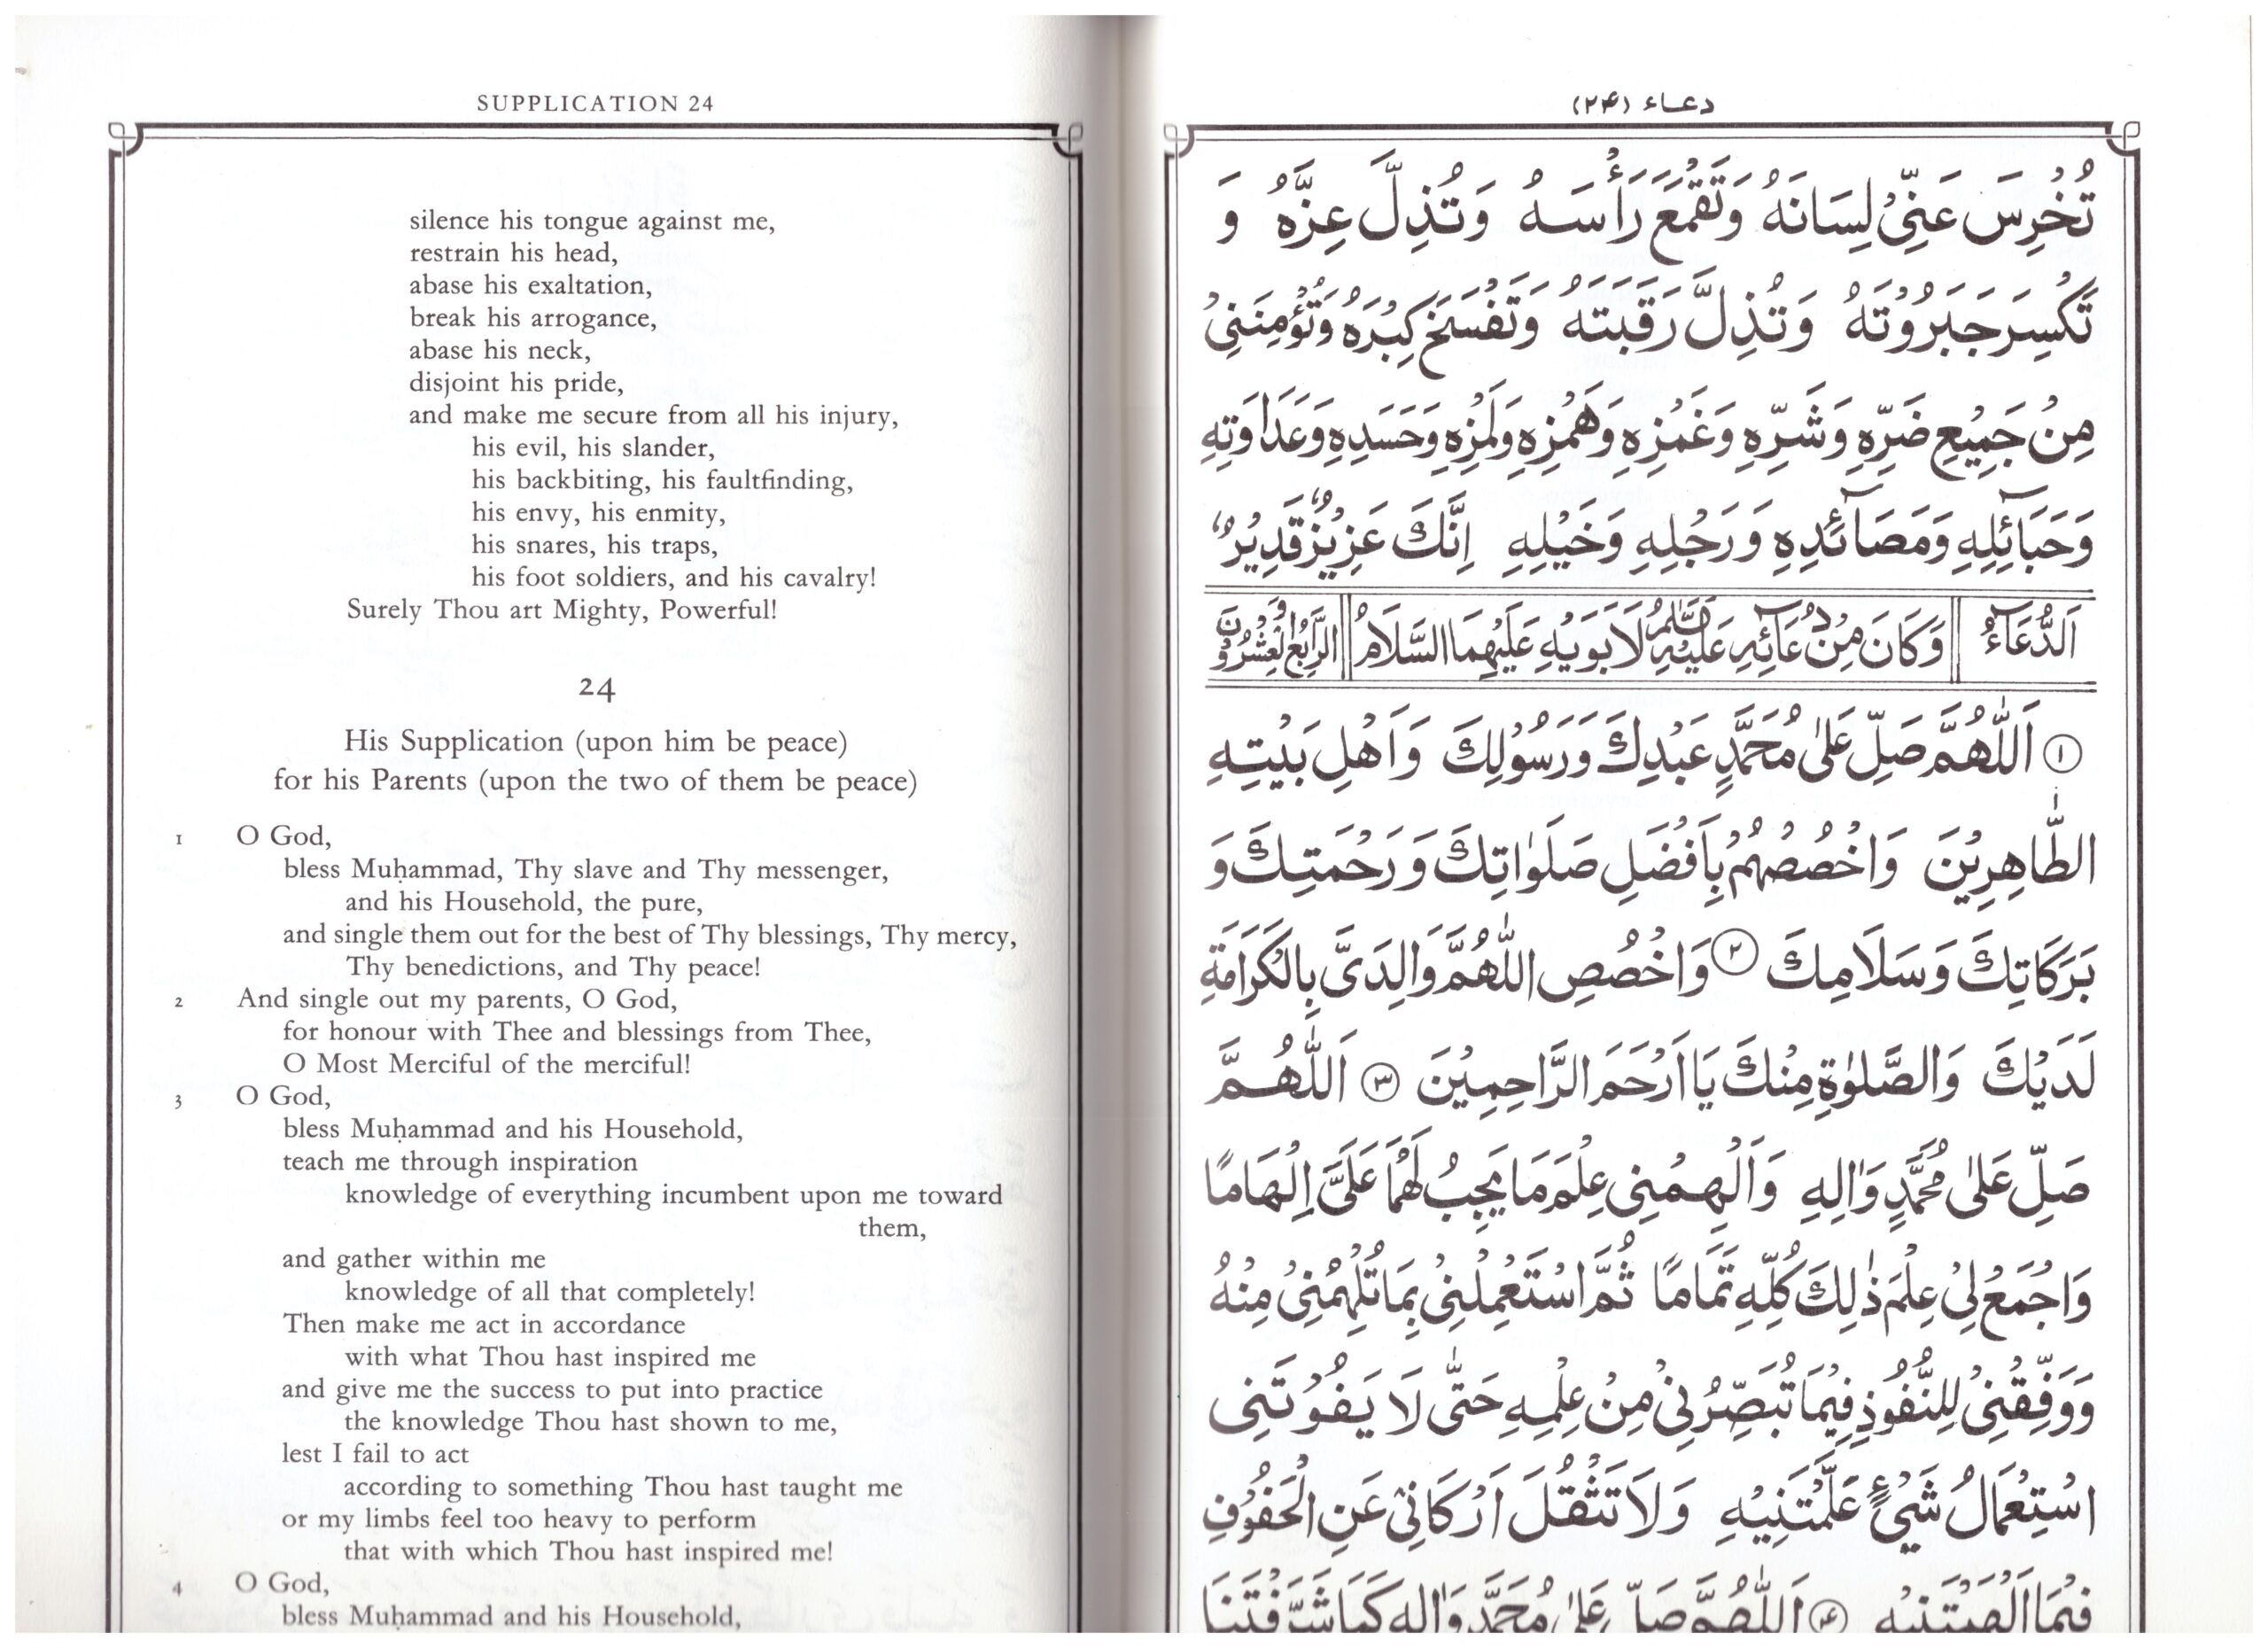 SUPPLICATION 24
silence his tongue against me,
restrain his head,
abase his exaltation,
break his arrogance,
abase his neck,
disjoint his pride,
and make me secure from all his injury,
his evil, his slander,
his backbiting, his faultfinding,
his envy, his enmity,
his snares, his traps,
his foot soldiers, and his cavalry!
Surely Thou art Mighty, Powerful!
24
His Supplication (upon him be peace)
for his Parents (upon the two of them be peace)
1 O God,
bless Muḥammad, Thy slave and Thy messenger,
and his Household, the pure,
and single them out for the best of Thy blessings, Thy mercy,
Thy benedictions, and Thy peace!
2 And single out my parents, O God,
for honour with Thee and blessings from Thee,
O Most Merciful of the merciful!
3 O God,
bless Muḥammad and his Household,
teach me through inspiration
knowledge of everything incumbent upon me toward
them,
and gather within me
knowledge of all that completely!
Then make me act in accordance
with what Thou hast inspired me
and give me the success to put into practice
the knowledge Thou hast shown to me,
lest I fail to act
according to something Thou hast taught me
or my limbs feel too heavy to perform
that with which Thou hast inspired me!
4 O God,
bless Muḥammad and his Household,
دعاء (۲۴)
تُخْرِسَ عَنِّیْ لِسَانَهُ وَتَقْمَعَ رَأْسَهُ وَتُذِلَّ عِزَّهُ وَ
تَكْسِرَ جَبَرُوْتَهُ وَتُذِلَّ رَقَبَتَهُ وَتَفْسَخَ كِبْرَهُ وَتُؤْمِنَنِیْ
مِنْ جَمِيْعِ ضَرِّهِ وَشَرِّهِ وَغَمْزِهِ وَهَمْزِهِ وَلَمْزِهِ وَحَسَدِهِ وَعَدَاوَتِهِ
وَحَبَآئِلِهِ وَمَصَآئِدِهِ وَرَجْلِهِ وَخَيْلِهِ اِنَّكَ عَزِيْزٌ قَدِيْرٌ
اَلدُّعَآءُ وَكَانَ مِنْ دُعَآئِهِ عَلَيْهِ السَّلَامُ لِاَبَوَيْهِ عَلَيْهِمَا السَّلَامُ الرَّابِعُ وَالْعِشْرُوْنَ
۱ اَللّٰهُمَّ صَلِّ عَلٰى مُحَمَّدٍ عَبْدِكَ وَرَسُوْلِكَ وَاَهْلِ بَيْتِهِ
الطَّاهِرِيْنَ وَاخْصُصْهُمْ بِاَفْضَلِ صَلَوٰاتِكَ وَرَحْمَتِكَ وَ
بَرَكَاتِكَ وَسَلَامِكَ ۲ وَاخْصُصِ اللّٰهُمَّ وَالِدَیَّ بِالْكَرَامَةِ
لَدَيْكَ وَالصَّلٰوةِ مِنْكَ يَا اَرْحَمَ الرَّاحِمِيْنَ ۳ اَللّٰهُمَّ
صَلِّ عَلٰى مُحَمَّدٍ وَاٰلِهِ وَاَلْهِمْنِی عِلْمَ مَا يَجِبُ لَهُمَا عَلَیَّ اِلْهَامًا
وَاجْمَعْ لِیْ عِلْمَ ذٰلِكَ كُلِّهِ تَمَامًا ثُمَّ اسْتَعْمِلْنِیْ بِمَا تُلْهِمُنِیْ مِنْهُ
وَوَفِّقْنِیْ لِلنُّفُوْذِ فِيْمَا تُبَصِّرُنِیْ مِنْ عِلْمِهِ حَتّٰى لَا يَفُوْتَنِی
اسْتِعْمَالُ شَیْءٍ عَلَّمْتَنِيْهِ وَلَا تَثْقُلَ اَرْكَانِیْ عَنِ الْحَفُوْفِ
فِيْمَا اَلْهَمْتَنِيْهِ ۴ اَللّٰهُمَّ صَلِّ عَلٰى مُحَمَّدٍ وَاٰلِهِ كَمَا شَرَّفْتَنَا